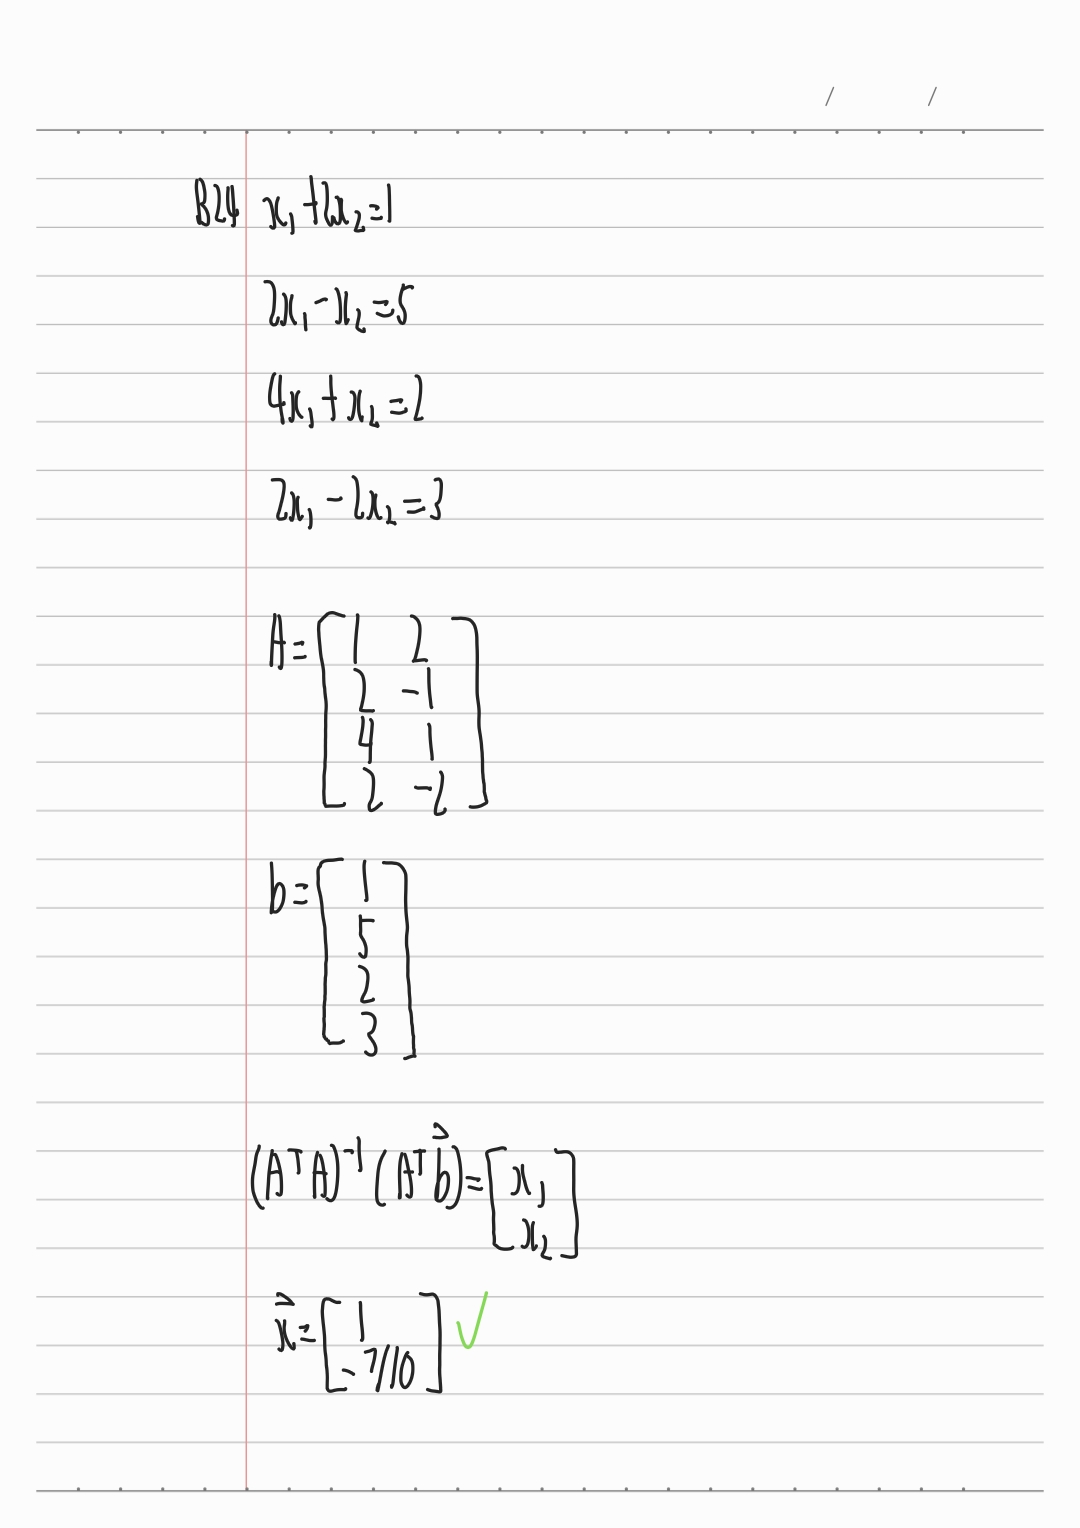 B24 x₁+2x₂=1
2x₁-x₂=5
4x₁+x₂=2
2x₁-2x₂=3
A= [ 1 2
2 -1
4 1
2 -2 ]
b= [ 1
5
2
3 ]
(AᵀA)⁻¹(Aᵀb⃗)= [ x₁
x₂ ]
x⃗= [ 1
-7/10 ] ✓